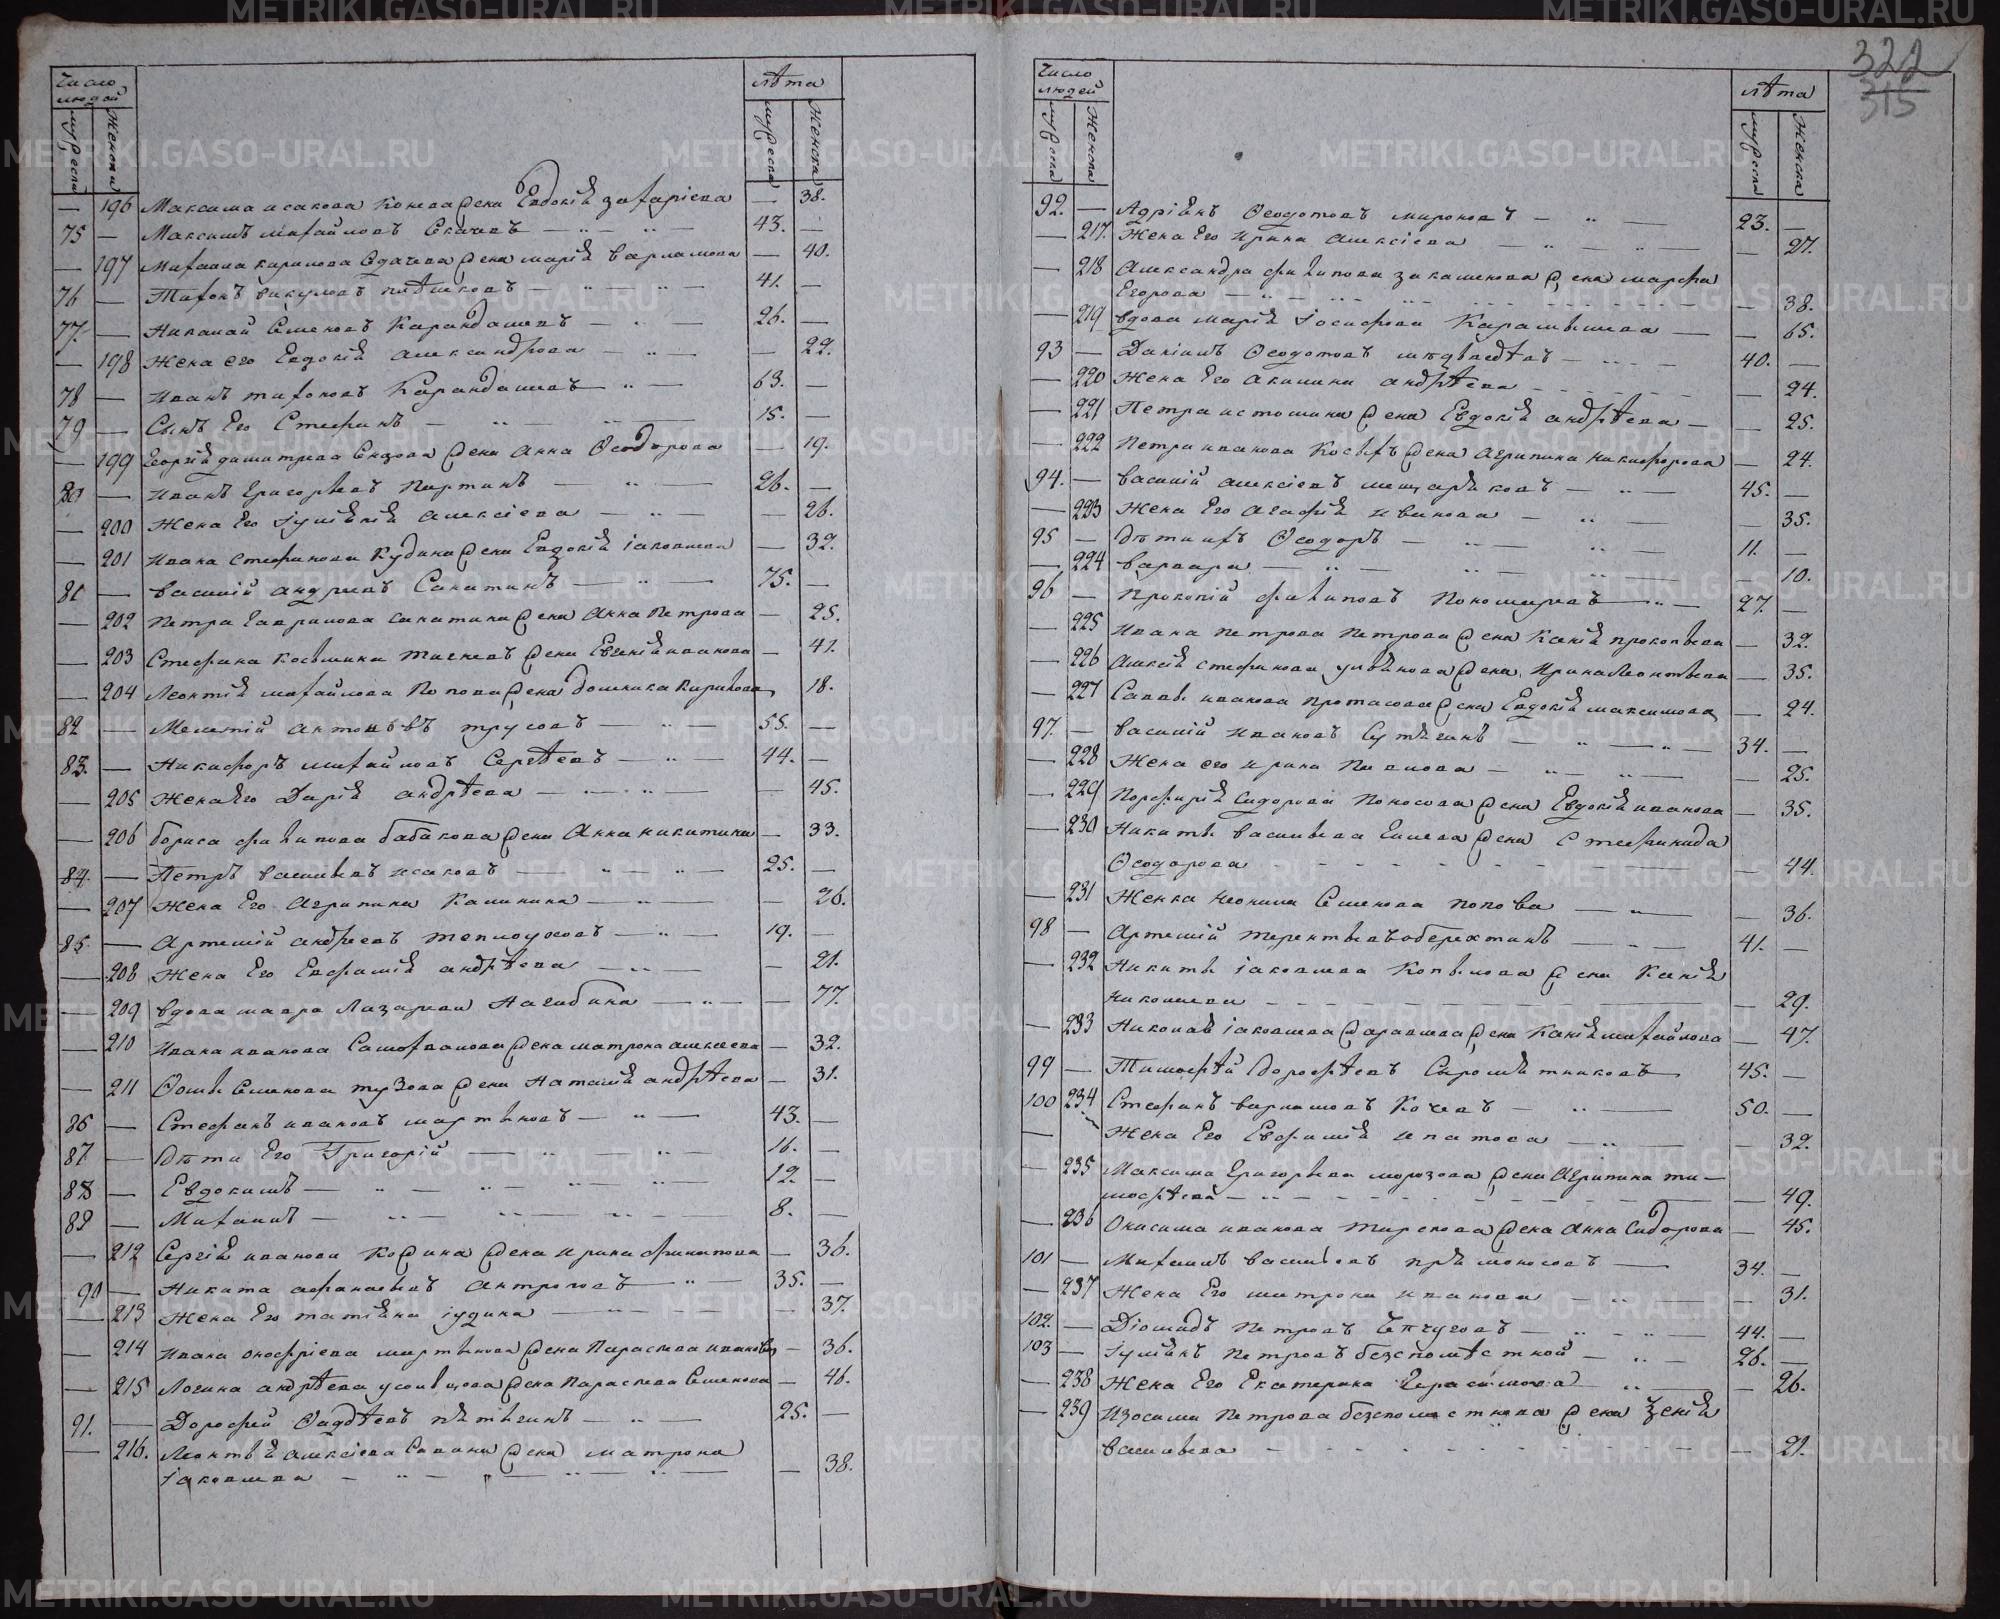 322
315
Число людей
лѣта
мужеска
Женска
мужеска
Женска
— 196 Максима исакова Конева жена Евдокія захаріева — 38.
75 — Максимъ михайловъ Скачевъ 43. —
— 197 Михаила кирилова жена марія варламова — 40.
76 — Тихонъ викуловъ 41. —
77. — Николай Семеновъ Карандашевъ 26. —
— 198 Жена его Евдокія александрова — 22.
78 — Иванъ тихоновъ Карандашевъ 63. —
79 — Сынъ Его Стефанъ 15. —
— 199 Георгія димитріева жена Анна Ѳеодорова — 19.
80 — Иванъ Григорьевъ Пиртинъ 26. —
— 200 Жена Его Іуліянія алексіева — 26.
— 201 Ивана стефанова Кудина жена Евдокія іаковлева — 32.
81 — василій андреевъ Сапатинъ 75. —
— 202 Петра Гаврилова сапатина жена Анна Петрова — 25.
— 203 Стефана Косьмина жена Евгенія иванова — 41.
— 204 Леонтія михайлова Попова жена домника Кирилова 18.
82 — Мелетій антоновъ трусовъ 55. —
83. — Никифоръ михайловъ Сергѣевъ 44. —
— 205 Жена Его Дарія андрѣева — 45.
— 206 бориса филипова бабакова жена Анна никитина — 33.
84. — Петръ васильевъ исаковъ 25. —
— 207 Жена Его Агрипина Калинина — 26.
85 — Артемій андреевъ теплоуховъ 19. —
— 208 Жена Его Евфимія андрѣева — 21.
— 209 вдова мавра Лазарева Нагибина — 77.
— 210 Ивана иванова Самохвалова жена матрона алексеева — 32.
— 211 Ѳомы Семенова тузова жена Наталія андрѣева — 31.
86 — Стефанъ ивановъ мартыновъ 43. —
87 — Дѣти Его Григорій 16. —
88 — Евдокимъ 12. —
89 — Михаилъ 8. —
— 212 Сергія иванова Кожина жена ирина филипова — 36.
90 — Никита афанасьевъ антроповъ 35. —
— 213 Жена Его татіяна іудина — 37.
— 214 Ивана онофріева мартынова жена Параскева иванова — 36.
— 215 Логина андрѣева усольцова жена Параскева Семенова — 46.
91. — Дорофей Ѳадѣевъ пѣтыгинъ 25. —
— 216. Леонтья алексіева Савина жена матрона
іаковлева — 38.
Число людей
лѣта
мужеска
Женска
мужеска
Женска
92. — Адріянъ Ѳеодотовъ мироновъ 23. —
— 217. Жена Его Ирина Алексіева — 27.
— 218 Александра филипова закаменова жена марфа
Егорова — 38.
— 219 вдова марія Іосифова Карамышева — 65.
93 — Даніилъ Ѳеодотовъ медведѣвъ 40. —
— 220 Жена Его акилина андрѣева — 24.
— 221 Петра истомина жена Евдокія андрѣева — 25.
— 222 Петра иванова Косыхъ жена Агрипина никифорова — 24.
94. — василій алексіевъ мещаряковъ 45. —
— 223 Жена Его Агафія иванова — 35.
95 — Дѣти ихъ Ѳеодоръ 11. —
— 224 варвара — 10.
96 — Прокопій филиповъ Пономаревъ 27. —
— 225 Ивана петрова Петрова жена Ксенія прокопьева — 32.
— 226 Алексія стефанова ульянова жена Ирина Леонтьева — 35.
— 227 Саввы иванова протасова жена Евдокія максимова — 24.
97. — василій ивановъ Сутягинъ 34. —
— 228 Жена его ирина Павлова — 25.
— 229 Порфирія сидорова Поносова жена Евдокія иванова — 35.
— 230 Никиты васильева жена Стефанида
Ѳеодорова — 44.
— 231 Женка неонила Семенова попова — 36.
98 — Артемій терентьевъ оберюхтинъ 41. —
— 232 Никиты іаковлева Копылова жена Ксенія
николаева — 29.
— 233 Николая іаковлева жена Ксенія михайлова — 47.
99 — Тимофѣй Дорофѣевъ Сыромятниковъ 45. —
100 234 Стефанъ варламовъ Кочевъ 50. —
— Жена Его Евфимія ипатова — 32.
— 235 Максима Григорьева морозова жена Агрипина ти-
мофѣева — 49.
— 236 Онисима иванова жена анна Сидорова — 45.
101 — Михаилъ васильевъ прямоносовъ 34. —
— 237 Жена Его матрона иванова — 31.
102. — Діомидъ петровъ Чепчуговъ 44. —
103 — Іуліянъ петровъ безпомѣстной 26. —
— 238 Жена Его Екатерина Герасимова — 26.
— 239 Изосима петрова безпоместнова жена Ксенія
васильева — 21.